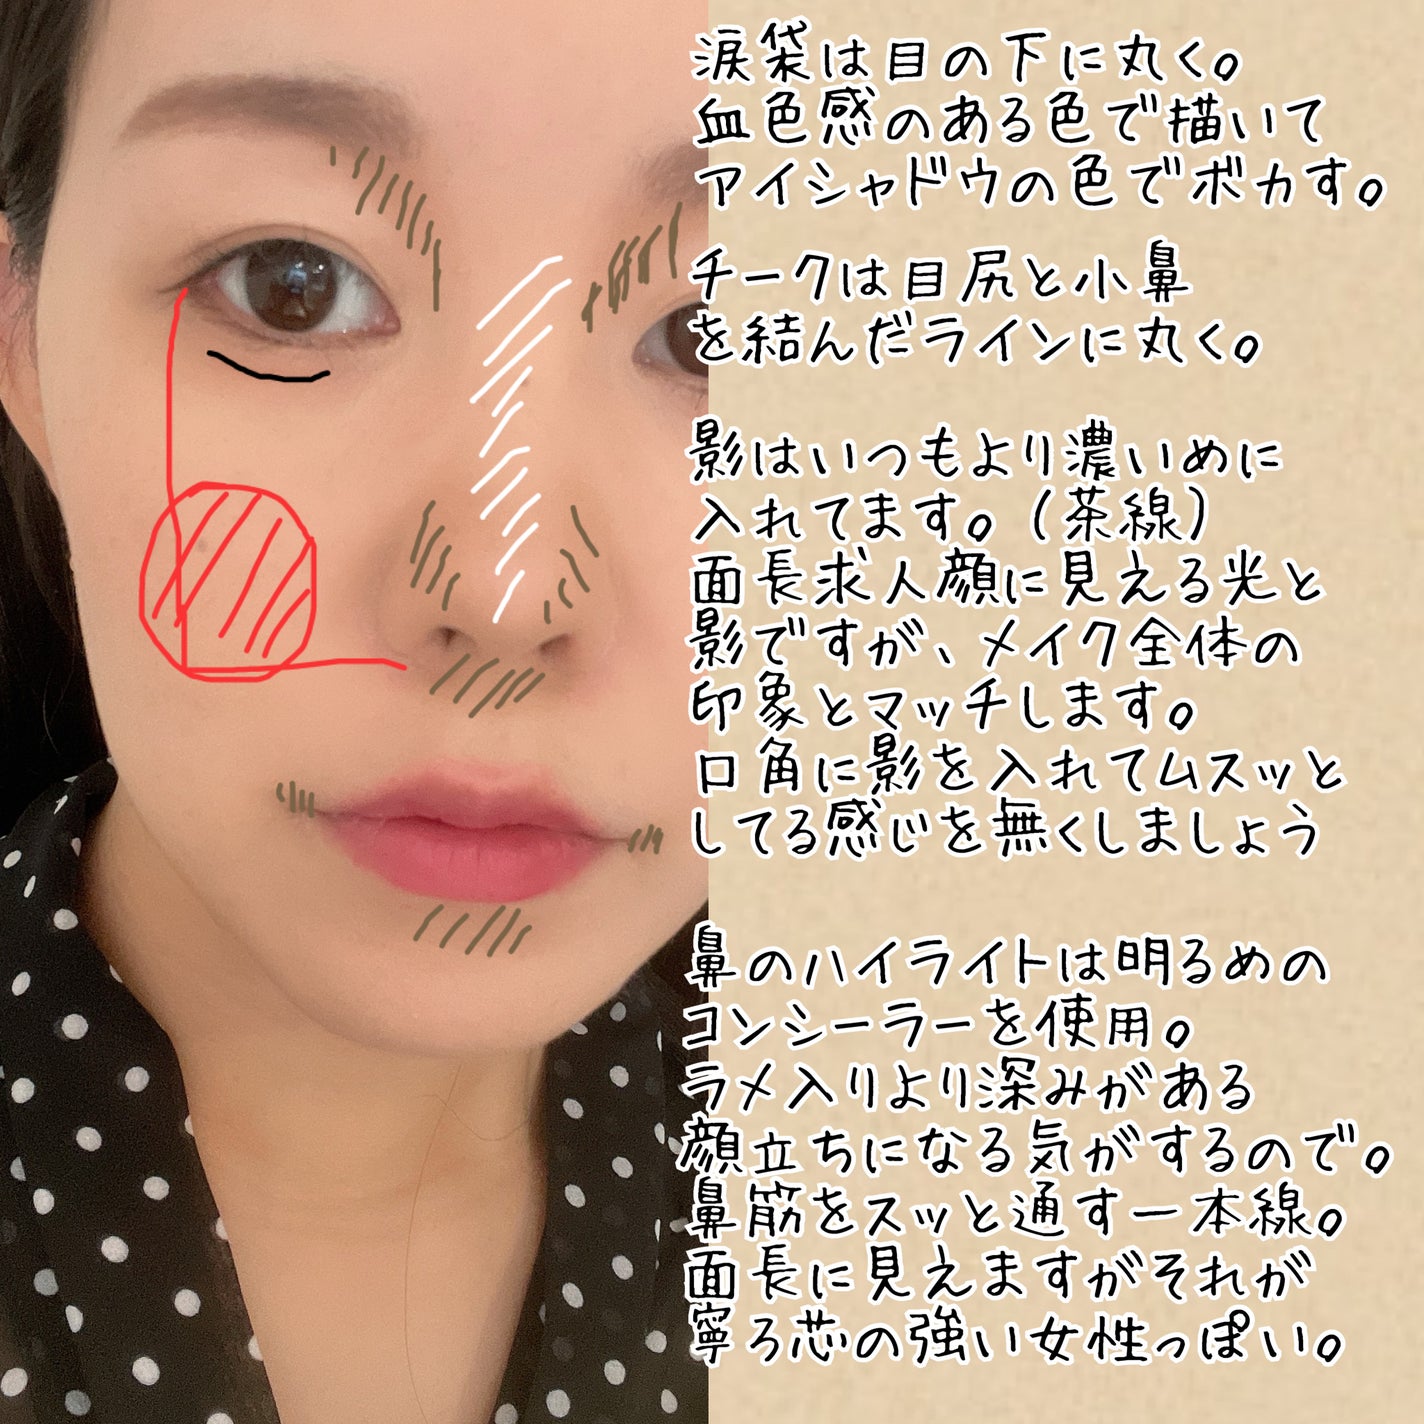 涙袋は目の下に丸く。
血色感のある色で描いて
アイシャドウの色でボカす。
チークは目尻と小鼻
を結んだラインに丸く。
影はいつもより濃いめに
入れてます。(茶線)
面長求人顔に見える光と
影ですが、メイク全体の
印象とマッチします。
口角に影を入れてムスッと
してる感じを無くしましょう
鼻のハイライトは明るめの
コンシーラーを使用。
ラメ入りより深みがある
顔立ちになる気がするので。
鼻筋をスッと通す一本線。
面長に見えますがそれが
寧ろ芯の強い女性っぽい。